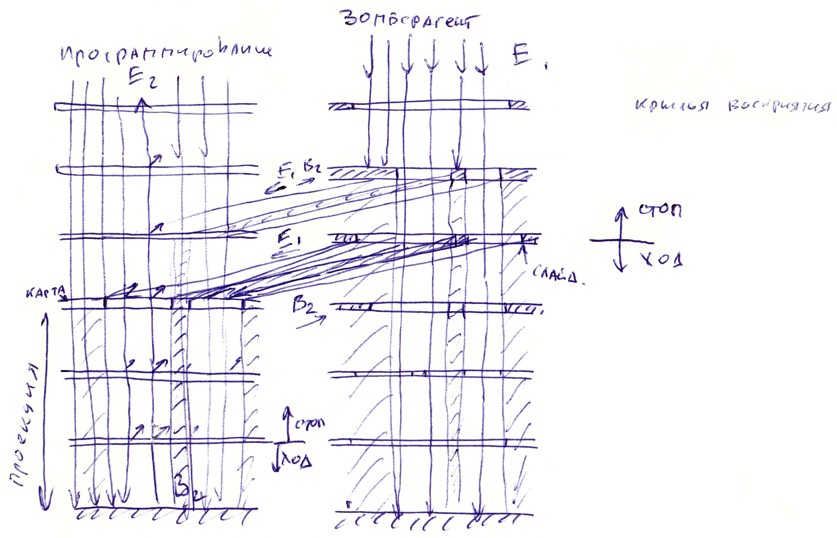 Зомберагент
Программирование
E₂
E₁
крылья восприятия
E, B₂
стоп
E₁
ход
слайд.
карта
B₂
Проекция
стоп
ход
B₂